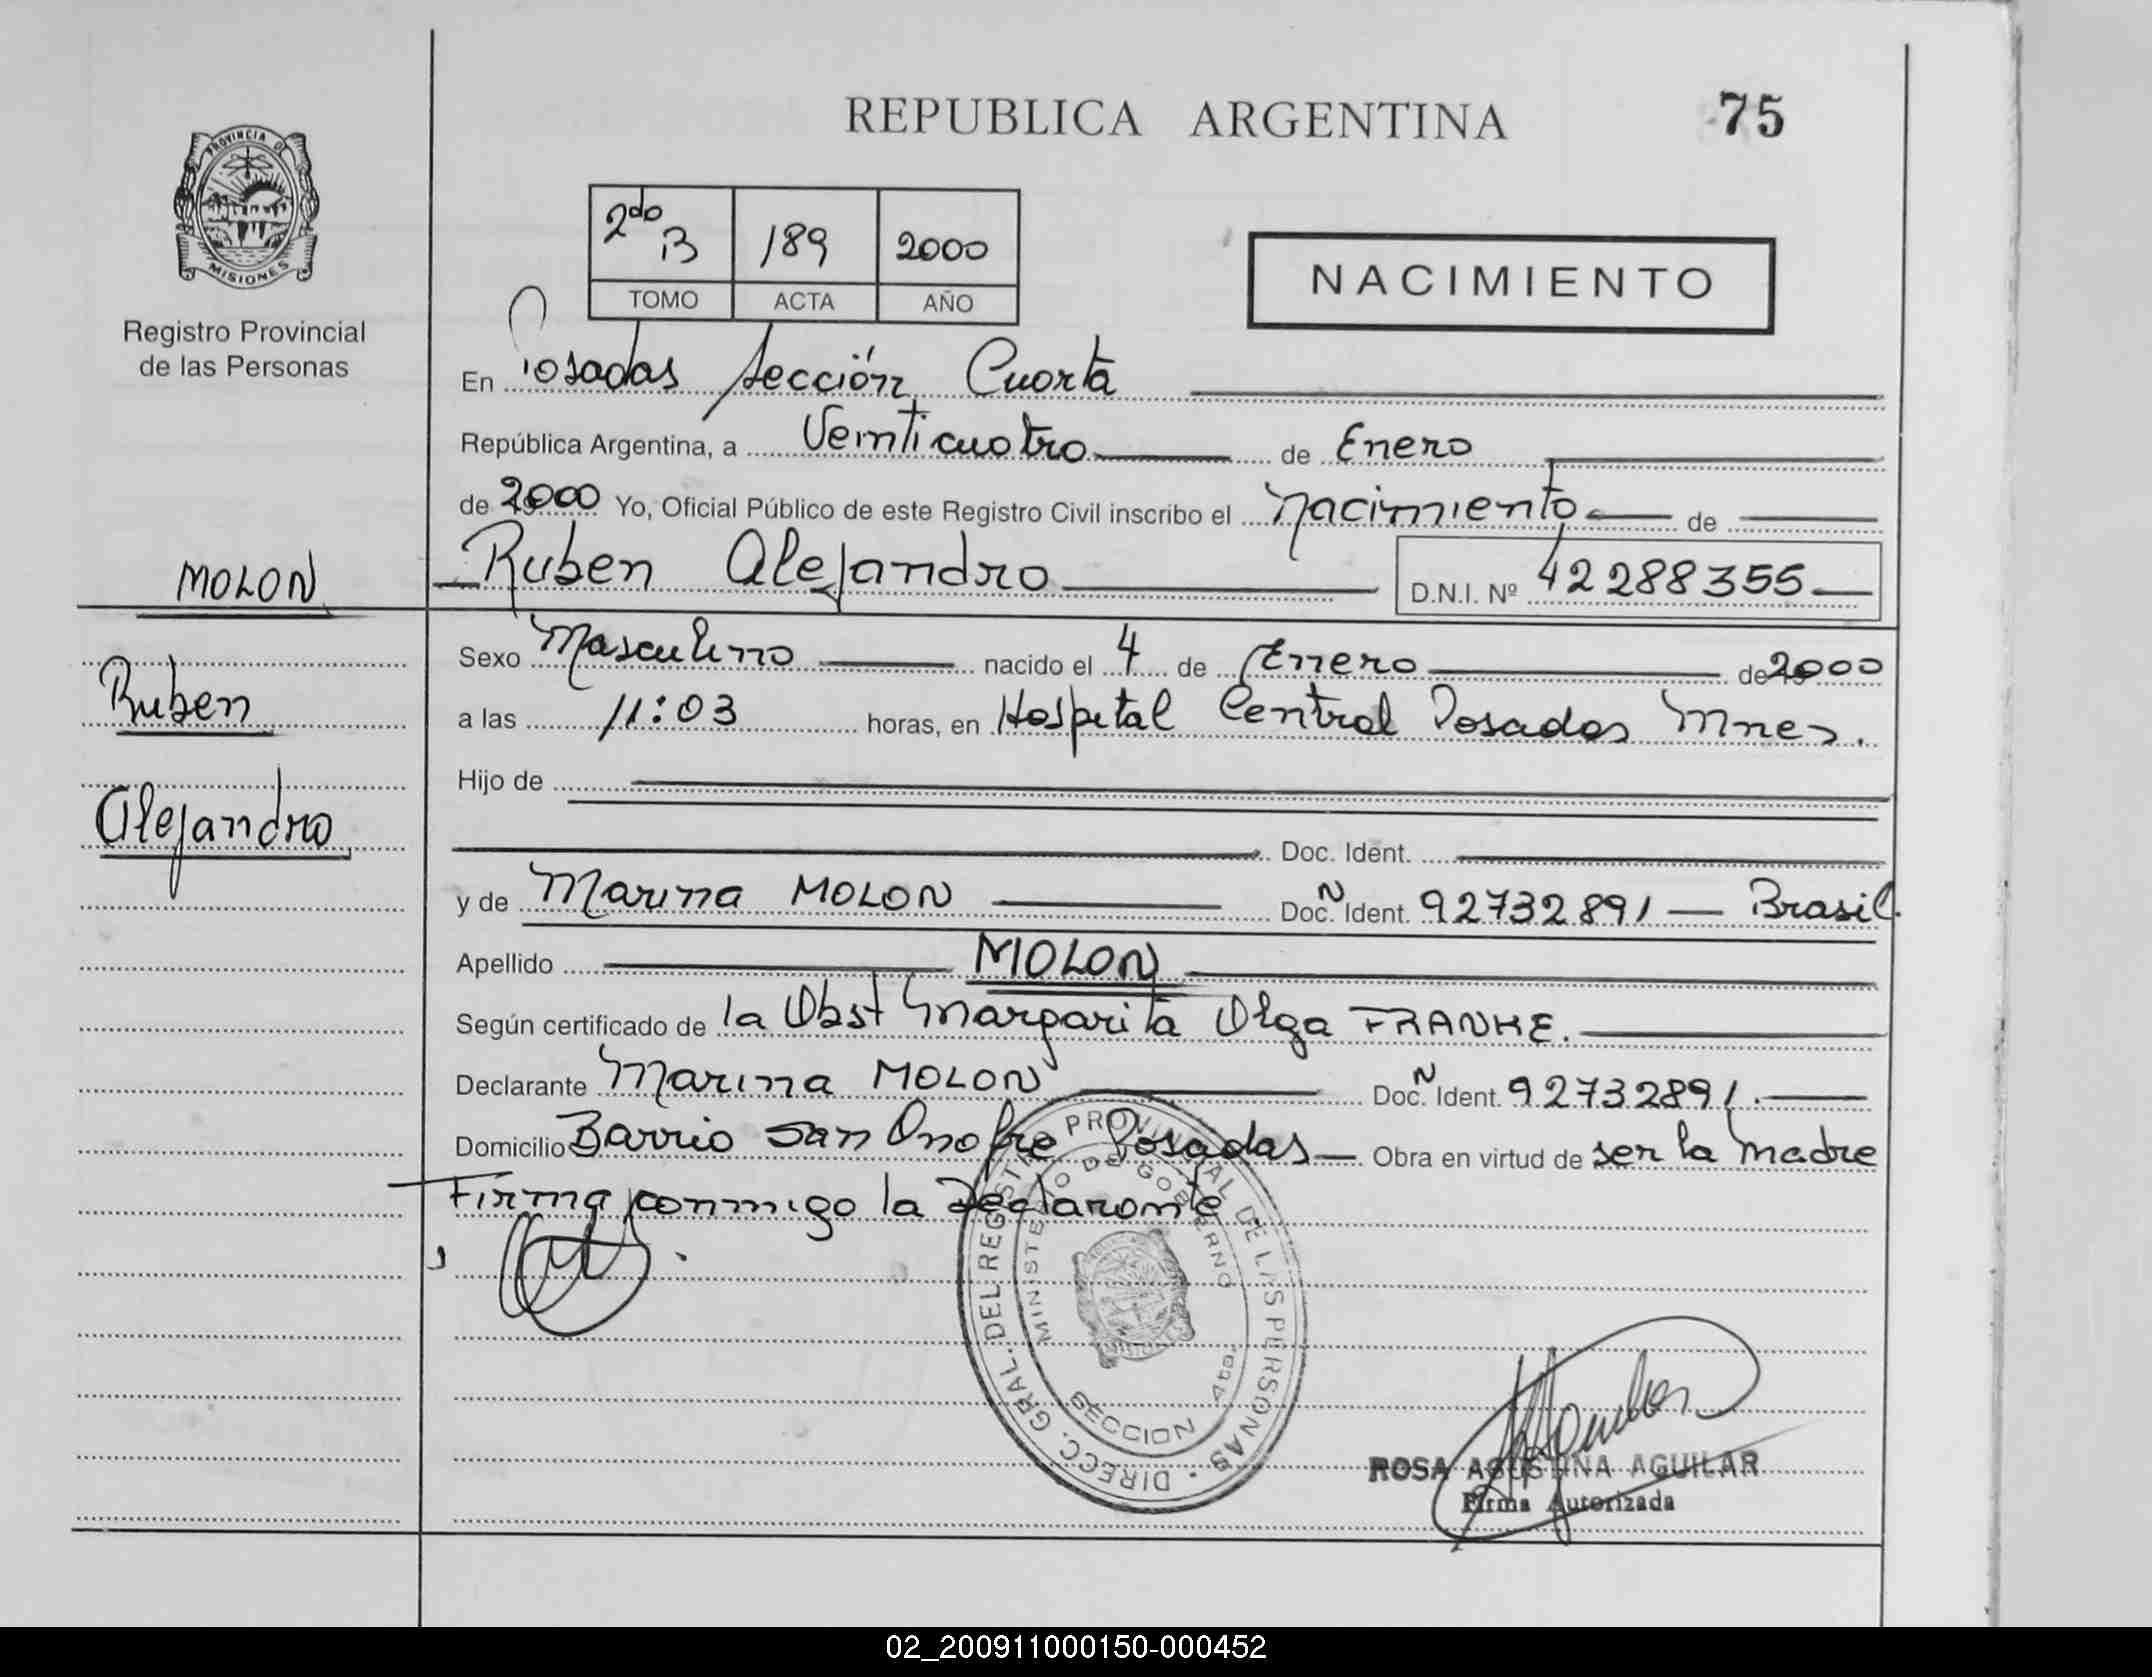 REPUBLICA ARGENTINA
75
PROVINCIA D
MISIONES
Registro Provincial
de las Personas
2do B 189 2000
TOMO ACTA AÑO
NACIMIENTO
En Posadas Sección Cuarta
República Argentina, a Veinticuatro de Enero
de 2000 Yo, Oficial Público de este Registro Civil inscribo el Nacimiento de
MOLON
Ruben Alejandro D.N.I. Nº 42288355
Sexo Masculino nacido el 4 de Enero de 2000
Ruben
a las 11:03 horas, en Hospital Central Posadas Mnes.
Hijo de
Alejandro
Doc. Ident.
y de Marina MOLON Doc. N Ident. 92732891 — Brasil.
Apellido MOLON
Según certificado de la Obst Margarita Olga FRANKE.
Declarante Marina MOLON Doc. N Ident. 92732891.
Domicilio Barrio San Onofre Posadas — Obra en virtud de ser la Madre
Firma conmigo la Declarante
DIRECC. GRAL. DEL REGISTRO PROVINCIAL DE LAS PERSONAS
MINISTERIO DE GOBIERNO
SECCION 4ta.
ROSA AGUSTINA AGUILAR
Firma Autorizada
02_200911000150-000452